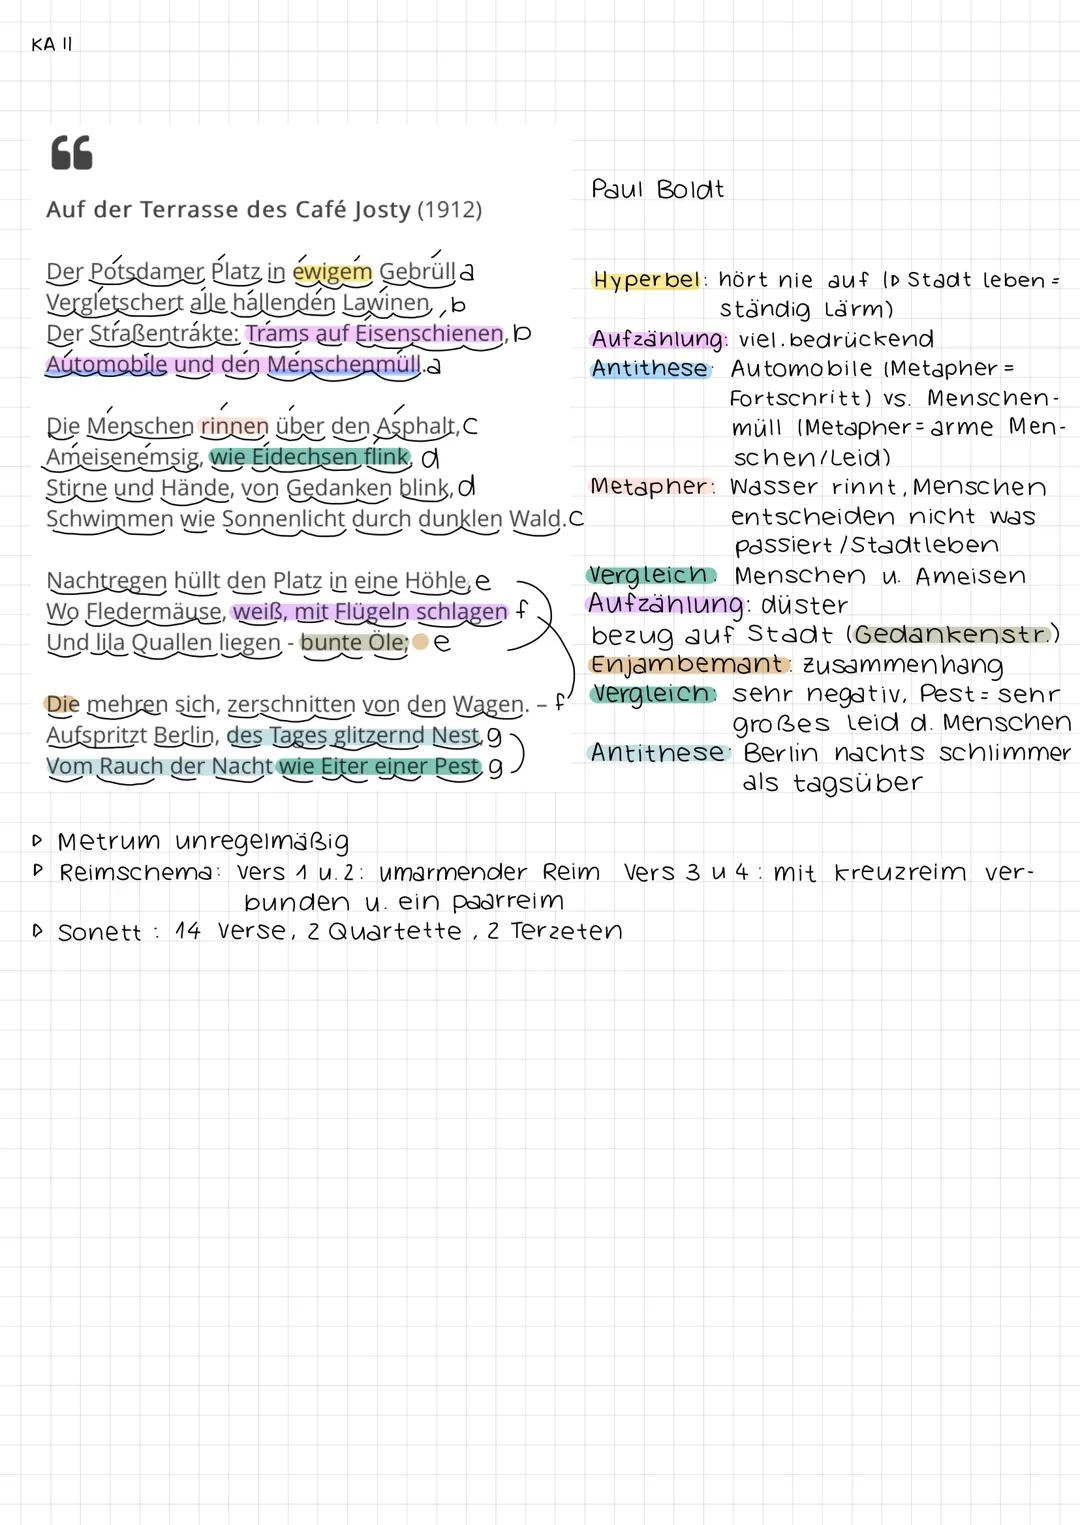 KA II
Auf der Terrasse des Café Josty (1912)
Paul Boldt
Der Potsdamer Platz in ewigem Gebrüll a
Vergletschert alle hallenden Lawinen, b
Der Straßentrakte: Trams auf Eisenschienen, b
Automobile und den Menschenmüll. a
Die Menschen rinnen über den Asphalt, c
Ameisenemsig, wie Eidechsen flink. d
Stirne und Hände, von Gedanken blink, d
Schwimmen wie Sonnenlicht durch dunklen Wald. c
Nachtregen hüllt den Platz in eine Höhle, e
Wo Fledermäuse, weiß, mit Flügeln schlagen f
Und lila Quallen liegen - bunte Öle; e
Die mehren sich, zerschnitten von den Wagen. – f
Aufspritzt Berlin, des Tages glitzernd Nest, g
Vom Rauch der Nacht wie Eiter einer Pest. g
Hyperbel: hört nie auf (▷ Stadt leben =
ständig Lärm)
Aufzählung: viel. bedrückend
Antithese: Automobile (Metapher =
Fortschritt) vs. Menschen-
müll (Metapher = arme Men-
schen/Leid)
Metapher: Wasser rinnt, Menschen
entscheiden nicht was
passiert/Stadtleben
Vergleich: Menschen u. Ameisen
Aufzählung: düster
bezug auf Stadt (Gedankenstr.)
Enjambemant: zusammenhang
Vergleich: sehr negativ, Pest = sehr
großes Leid d. Menschen
Antithese: Berlin nachts schlimmer
als tagsüber
▷ Metrum unregelmäßig
▷ Reimschema: Vers 1 u. 2: umarmender Reim Vers 3 u 4: mit kreuzreim ver-
bunden u. ein paarreim
▷ Sonett: 14 Verse, 2 Quartette, 2 Terzeten